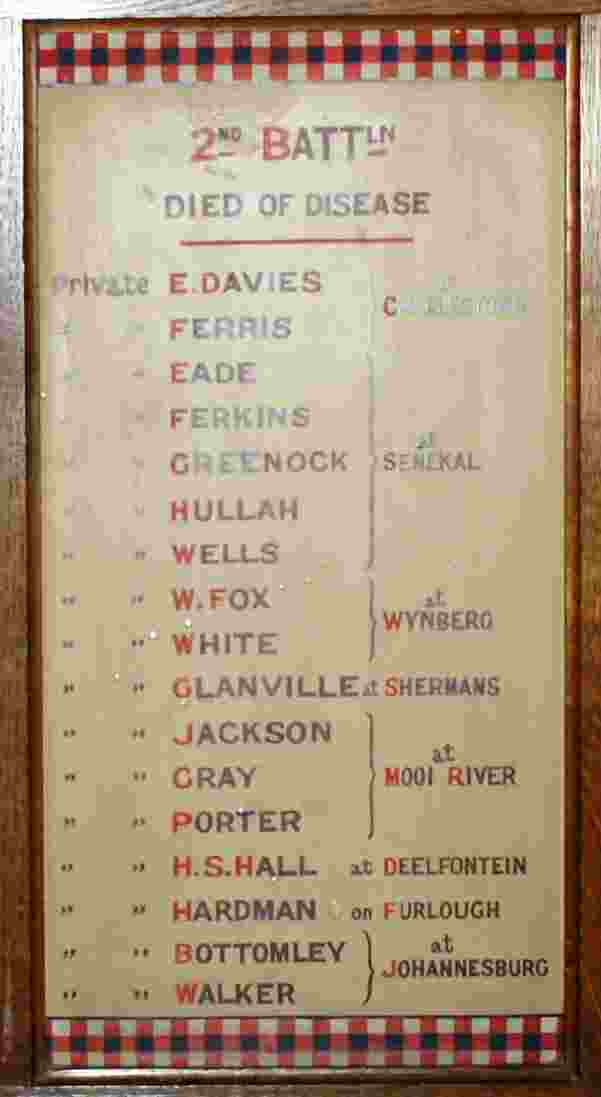 2ND BATTLN
DIED OF DISEASE
Private E. DAVIES
" " FERRIS
" " EADE
" " FERKINS
" " GREENOCK
at
SENEKAL
" " HULLAH
" " WELLS
" " W. FOX
" " WHITE
at
WYNBERG
" " GLANVILLE at SHERMANS
" " JACKSON
" " GRAY
" " PORTER
at
MOOI RIVER
" " H.S. HALL at DEELFONTEIN
" " HARDMAN on FURLOUGH
" " BOTTOMLEY
" " WALKER
at
JOHANNESBURG